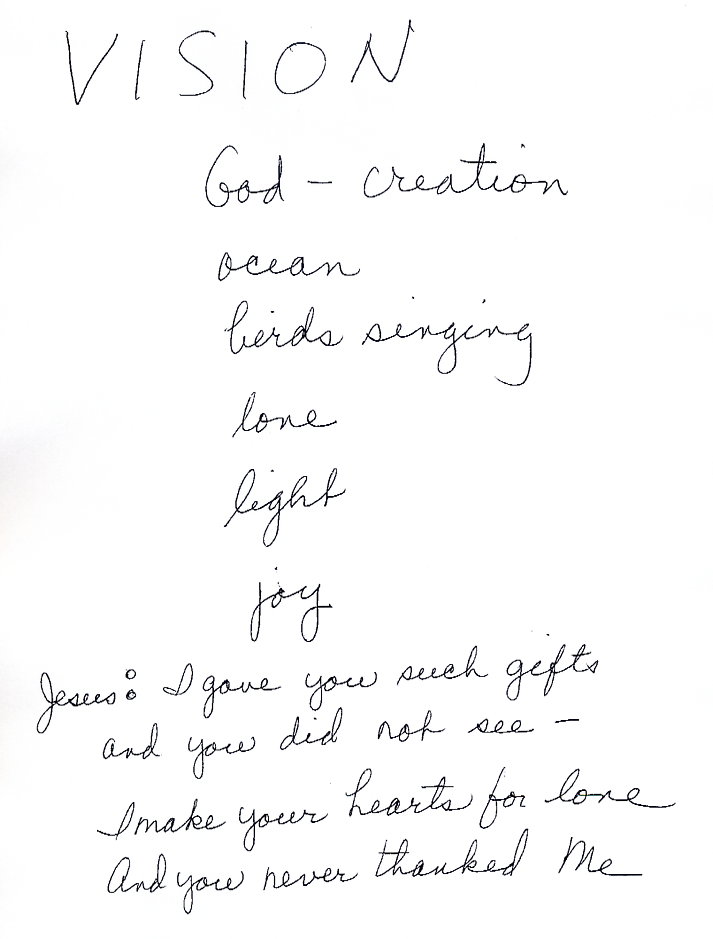 VISION
God – creation
ocean
birds singing
love
light
joy
Jesus: I gave you such gifts
and you did not see –
I make your hearts for love
And you never thanked Me